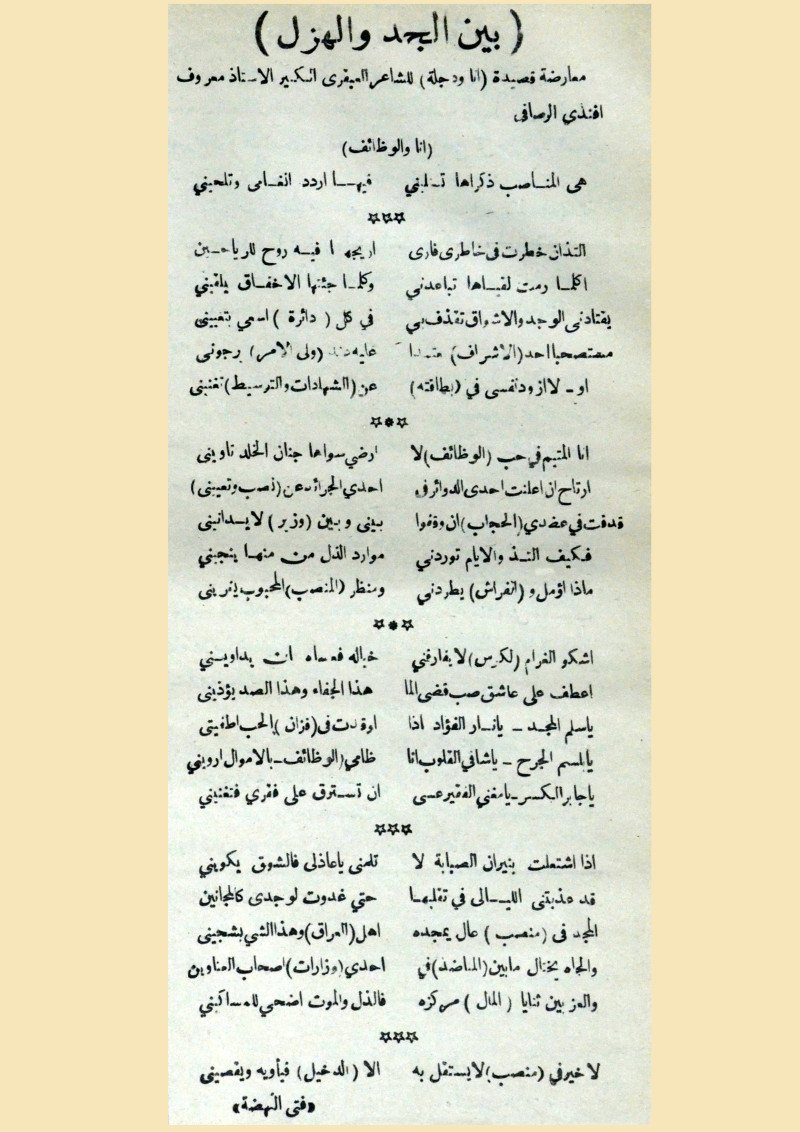 ( بين الجد والهزل )
معارضة قصيدة (انا ودجلة) للشاعر العبقرى الكبير الاستاذ معروف
افندي الرصافي
(انا والوظائف)
هى المناصب ذكراها تسلبني فيهـا اردد انغامى وتلحيني
☆☆☆
التذان خطرت فى خاطرى فارى اريجها فيه روح للرياحين
اكلما رمت لقياها تباعدني وكلما جئتها الاخفاق يلقيني
يقتادنى الوجد والاشواق تقذف بي في كل ( دائرة ) اسمي بتعييني
مستصحبا احد (الاشراف) (ولى الامر) يرجونى
او ـ لازود نفسى في (بطاقته) عن (الشهادات والتوسيط) تغنينى
☆*☆
انا المتيم في حب (الوظائف) لا ارضي سواها جنان الخلد تاويني
ارتاح ان اعلنت احدى الدوائر فى احدي الجرائد عن (نصب وتعييني)
قدفت في عضدي (الحجاب) ان وقفوا بينى وبين (وزير) لا يسدانينى
فكيف التذ والايام توردني موارد الذل من منها ينجيني
ماذا اؤمل و (الفراش) يطردني ومنظر (المنصب) المحبوب يغريني
☆*☆
اشكو الغرام (لكرس) لا يفارقني خياله فعساه ان يداويني
اعطف على عاشق صب قضى الما هذا الجفاء وهذا الصد يؤذيني
ياسلم المجد ـ يانار الفؤاد اذا اوقدت فى (فزان) الحب اطفيتى
يابلسم الجرح ـ ياشافي القلوب انا ظامي (الوظائف ـ بالاموال ارويني
ياجابر الكسر ـ يامغني الفقير عسى ان تسترق على فقري فتغنيني
☆☆☆
اذا اشتعلت بنيران الصبابة لا تلمنى ياعاذلى فالشوق يكويني
قد عذبتنى الليـالى في تقلبهـا حتي غدوت لوجدى كالمجانين
المجد فى (منصب) عال يمجده اهل (العراق) وهذا الشي يشجينى
والجاه يختال مابين (المناضد) في احدي (وزارات) اصحاب العناوين
والعز بين ثنايا ( المال ) مركزه فالذل والموت اضحي للمساكيني
☆☆☆
لا خير في (منصب) لا يستقل به الا (الدخيل) فيأويه ويقصيني
«فتى النهضة»